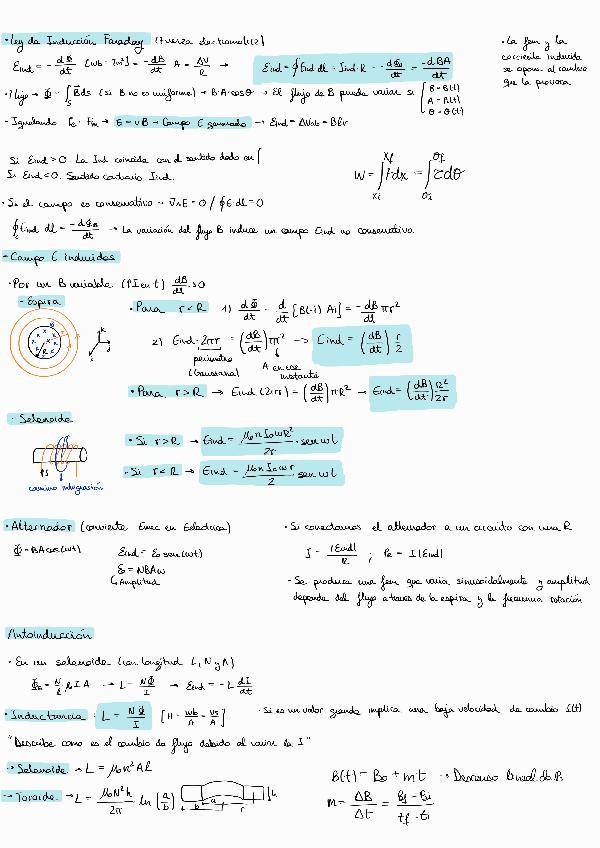 · Ley de Inducción Faraday (Fuerza electromotriz)
· La fem y la
corriente inducida
se opone al cambio
que la provoca.
Eind = - dΦ/dt [Wb = Tm²] = -dB/dt A = ΔV/R → Eind = ∮ Eind dl = Iind·R = -dΦB/dt = -dBA/dt
· Flujo → Φ = ∫s B ds (si B no es uniforme) → B·A·cosθ → El flujo de B puede variar si { B = B(t)
A = A(t)
θ = θ(t)
- Igualando Fe = Fm → E = vB → Campo E generado → Eind = ΔVab = Blv
Si Eind > 0. La Iind coincide con el sentido dado en ∫
Si Eind < 0. Sentido contrario Iind.
W = ∫xi xf F dx = ∫θi θf τ dθ
· Si el campo es conservativo → ∇×E = 0 / ∮ E·dl = 0
∮c Eind dl = -dΦB/dt → La variación del flujo B induce un campo Eind no conservativo.
- Campo E inducidos
· Por un B variable (↑I en t) dB/dt > 0
- Espira
· Para r < R 1) dΦ/dt = d/dt [B(t) A] = -dB/dt πr²
2) Eind · 2πr = (dB/dt) πr² → Eind = (dB/dt) r/2
perímetro
(Gaussiana)
A en ese
instante
· Para r > R → Eind (2πr) = (dB/dt) πR² → Eind = (dB/dt) R²/2r
- Solenoide
· Si r > R → Eind = μ₀ n I₀ w R²/2r · sen wt
- Si r < R → Eind = μ₀ n I₀ w r/2 · sen wt
camino integración
· Alternador (convierte Emec en Eeléctrica)
· Si conectamos el alternador a un circuito con una R
Φ = BA cos(wt) Eind = E₀ sen(wt)
I = |Eind|/R ; PR = I |Eind|
E₀ = NBAw
↳ Amplitud
- Se produce una fem que varía sinusoidalmente y amplitud
depende del flujo a través de la espira y la frecuencia rotación
Autoinducción
· En un solenoide (con longitud l, N y A)
ΦB = N/l μ I A → L = NΦ/I → Eind = - L dI/dt
· Inductancia: L = NΦ/I [H = Wb/A = Vs/A]
· Si es un valor grande implica una baja velocidad de cambio I(t)
"Describe como es el cambio de flujo debido al variar la I"
→ Solenoide → L = μ₀n²Al
→ Toroide → L = μ₀N²h/2π ln (a/b)
B(t) = B₀ + mt → Descenso lineal de B
m = ΔB/Δt = Bf - Bi/tf - ti